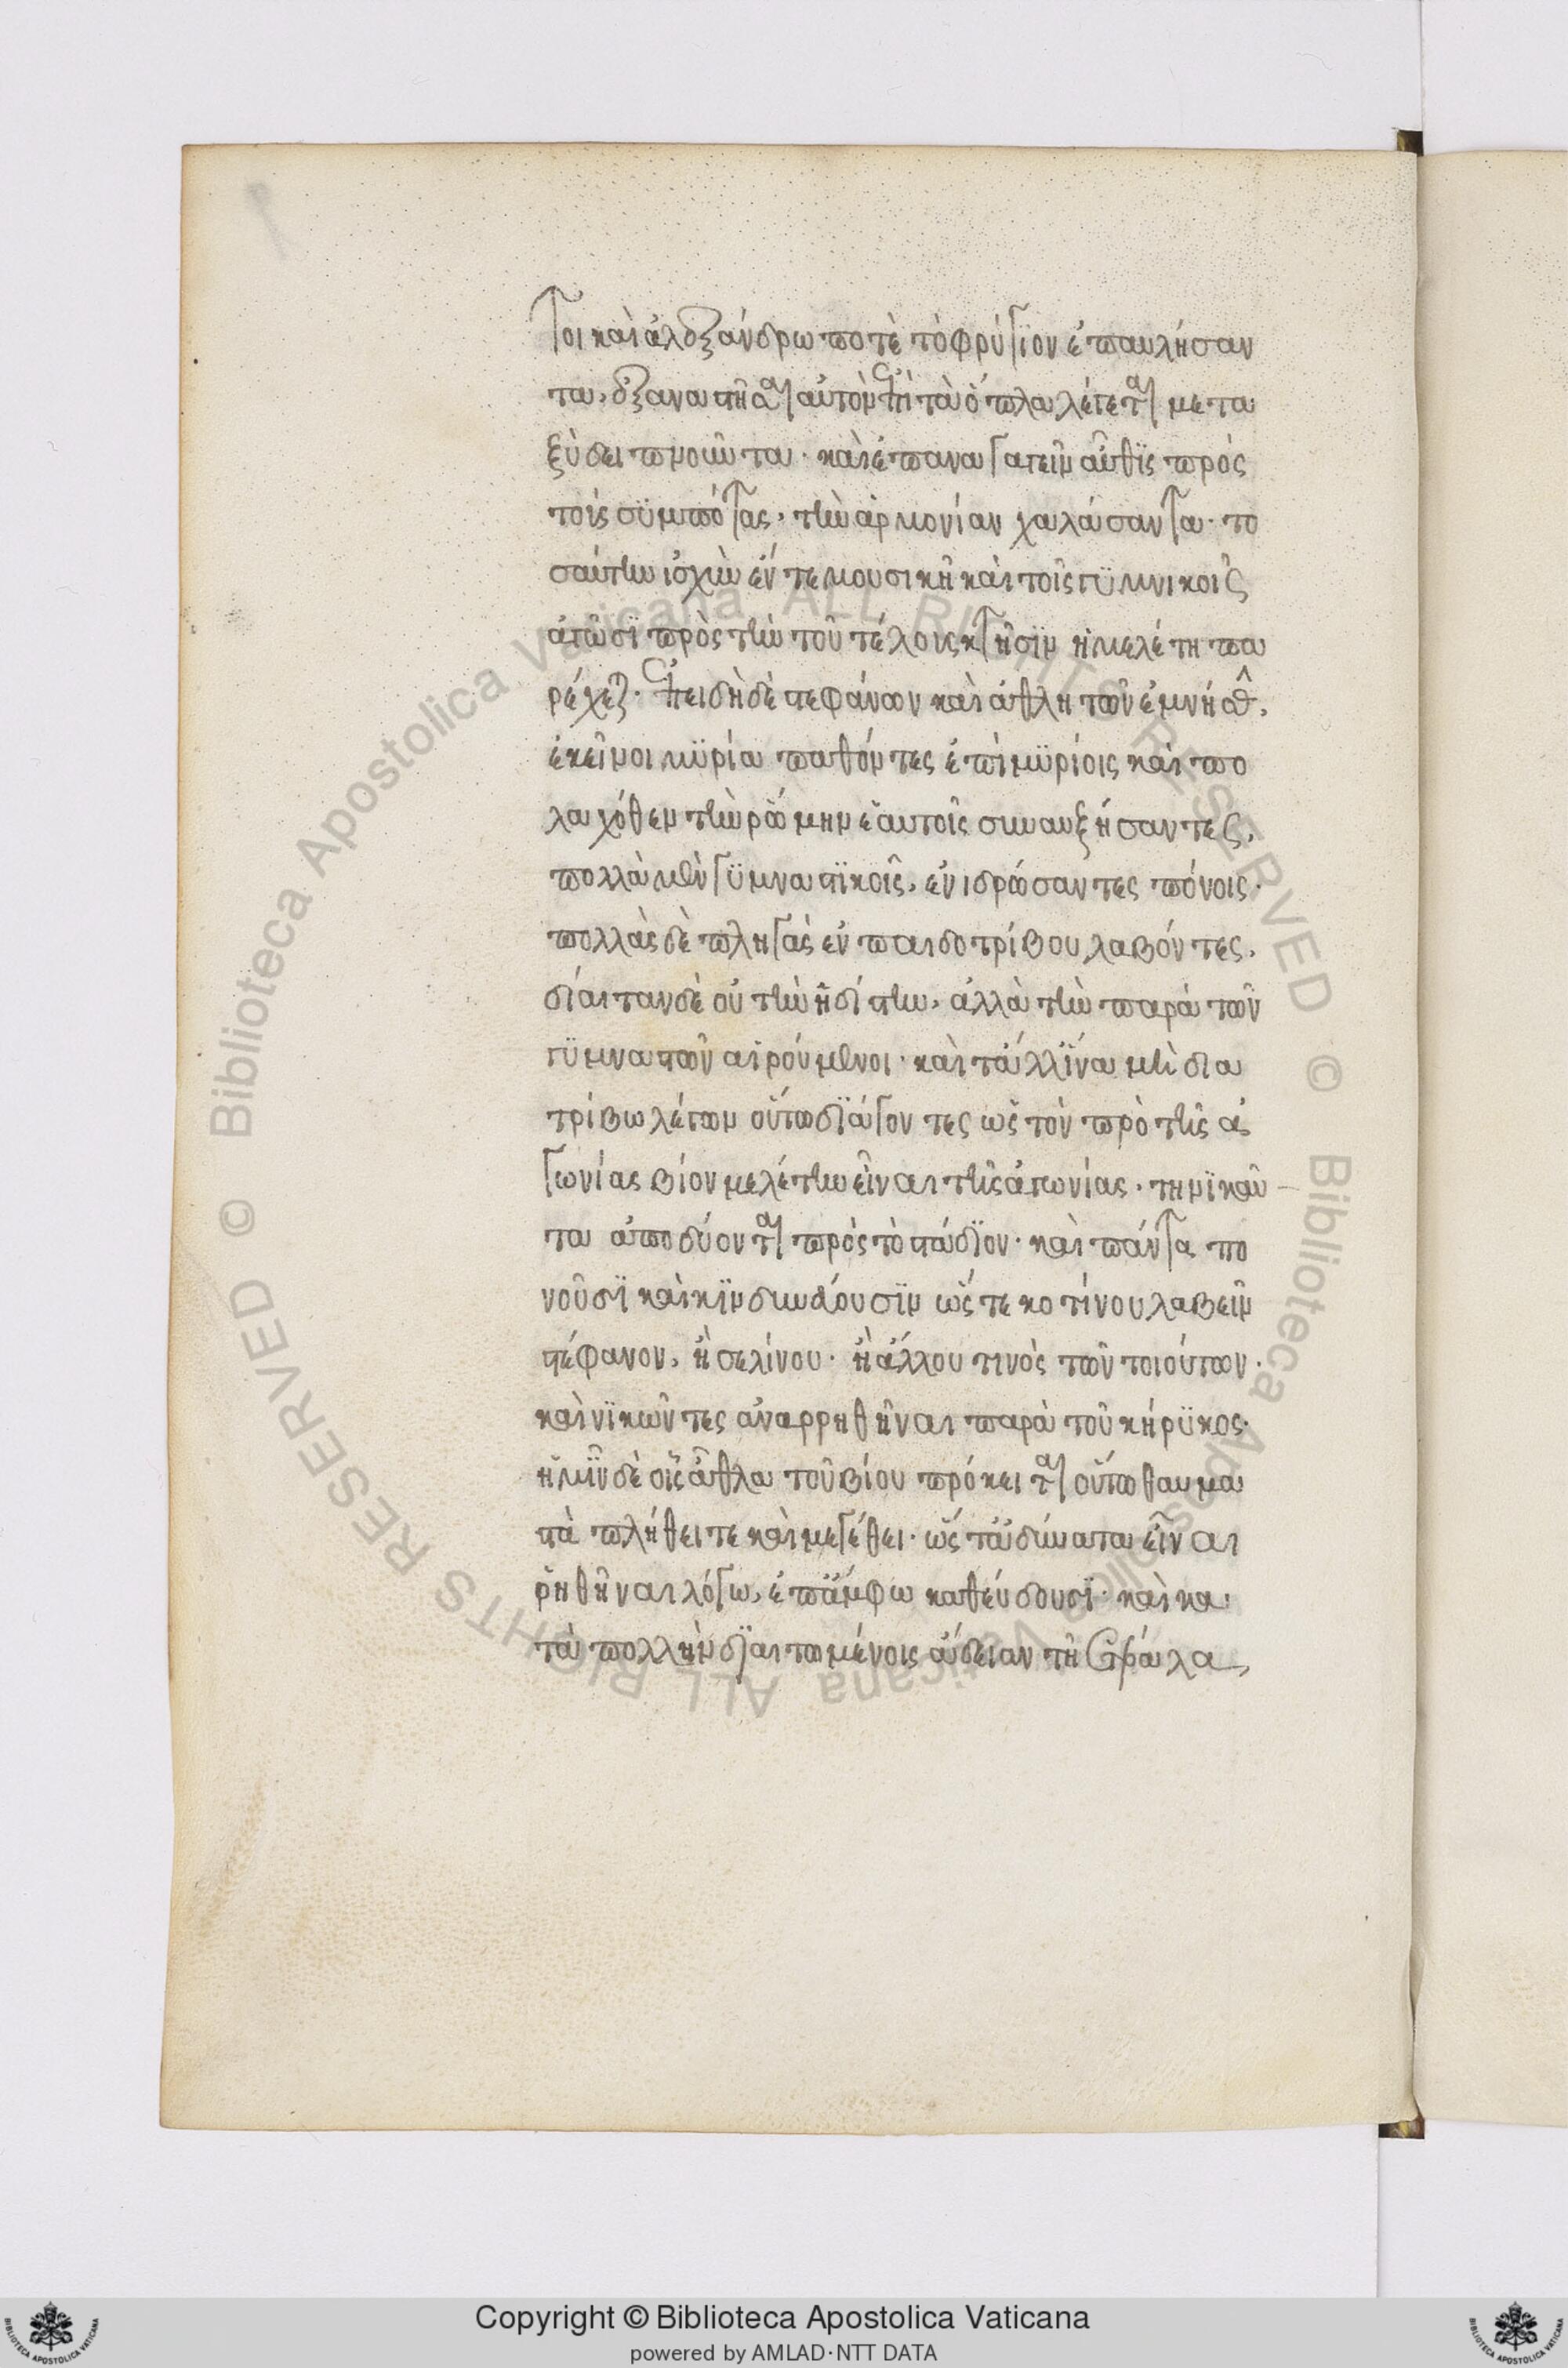 τοι καὶ ἀλεξάνδρω ποτὲ τὸ φρύγϊον ἐπαυλήσαν
τα, ἐξαναστῆσαι αὐτὸν ἐπὶ τὰ ὅπλα λέγεται μετα
ξὺ δειπνοῦντα· καὶ ἐπαναγαγεῖν αὖθϊς πρὸς
τοὺς συμπότας, τὴν ἁρμονίαν χαλάσαντα· το
σαύτην ἰσχὺν ἔν τε μουσικῆ καὶ τοῖς γϋμνικοῖς
ἀγῶσϊ πρὸς τὴν τοῦ τέλους κτῆσϊν ἡ μελέτη πα
ρέχει. Ἐπειδὴ δὲ στεφάνων καὶ ἀθλητῶν ἐμνήσθην,
ἐκεῖνοι μϋρία παθόντες ἐπὶ μϋρίοις καὶ πο
λαχόθεν τὴν ῥώμην ἑαυτοῖς συναυξήσαντες,
πολλὰ μὲν γϋμναστϊκοῖς, ἐνιδρώσαντες πόνοις·
πολλὰς δὲ πληγὰς ἐν παιδοτρίβου λαβόντες,
δίαιταν δὲ οὐ τὴν ἡδίστην, ἀλλὰ τὴν παρὰ τῶν
γϋμναστῶν αἱρούμενοι· καὶ τἄλλϊνα μὴ δια
τρίβω λέγων οὕτω δϊάγοντες ὡς τὸν πρὸ τῆς ἀ
γωνίας βίον μελέτην εἶναι τῆς ἀγωνίας. τηνϊκαῦ
τα ἀποδύονται πρὸς τὸ στάδϊον· καὶ πάντα πο
νοῦσϊ καὶ κϊνδυνεύουσϊν ὥστε κοτίνου λαβεῖν
στέφανον, ἢ σελίνου· ἢ ἄλλου τινὸς τῶν τοιούτων·
καὶ νϊκῶντες ἀναρρηθῆναι παρὰ τοῦ κήρϋκος·
ἡμῖν δὲ οἷς ἆθλα τοῦ βίου πρόκειται οὕτω θαυμα
στὰ πλήθει τε καὶ μεγέθει· ὡς τἀδύνατα εἶναι
ῥηθῆναι λόγω, ἐπἄμφω καθεύδουσϊ· καὶ κα
τὰ πολλὴν δϊαιτωμένοις ἄδειαν τῆ ἑτέρα λα
Copyright © Biblioteca Apostolica Vaticana
powered by AMLAD·NTT DATA